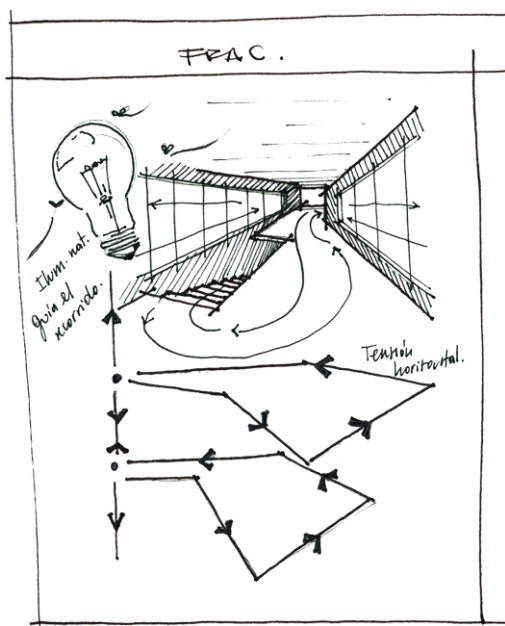 FRAC.
Ilum. nat.
guia el
recorrido.
Tensión
horizontal.